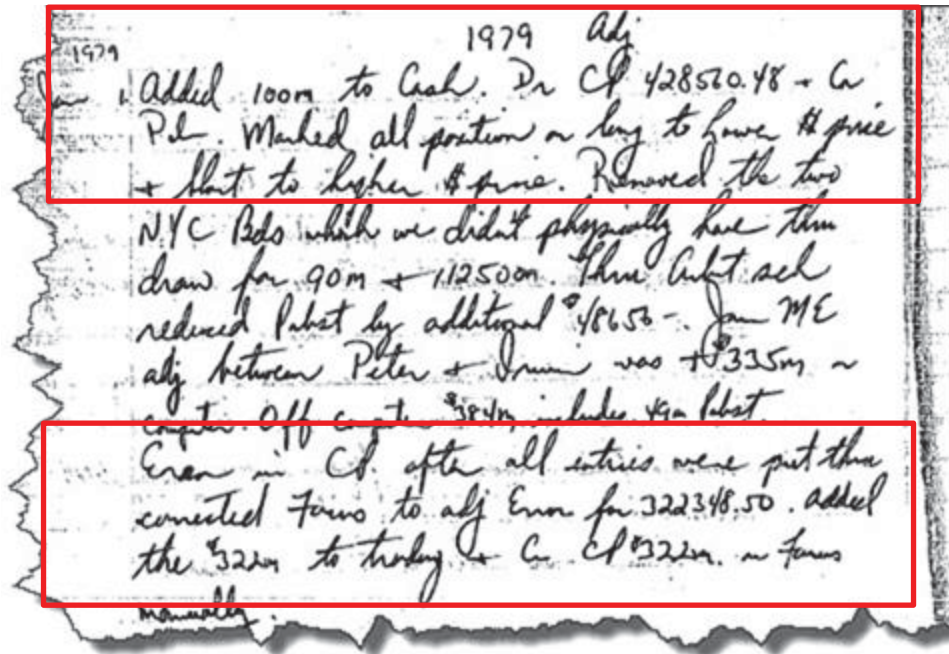 1979 Adj
1979
Jan 1 Added 100m to Cash. Dr CP 428560.48 + Cr
P+L. Marked all position on long to lower $ price
+ Short to higher $ price. Removed the two
NYC Bds which we didn't physically have thru
draw for 90m + 112500m. Thru Cubt sch
reduced Pabst by additional $48650-. Jan ME
adj between Peter + Irwin was + $335m on
computer. Off computer $384m includes 49m Pabst.
Error in CP after all entries were put thru
corrected Focus to adj Error for 322348.50. added
the $322m to trading + Cr CP $322m. in Focus
manually.